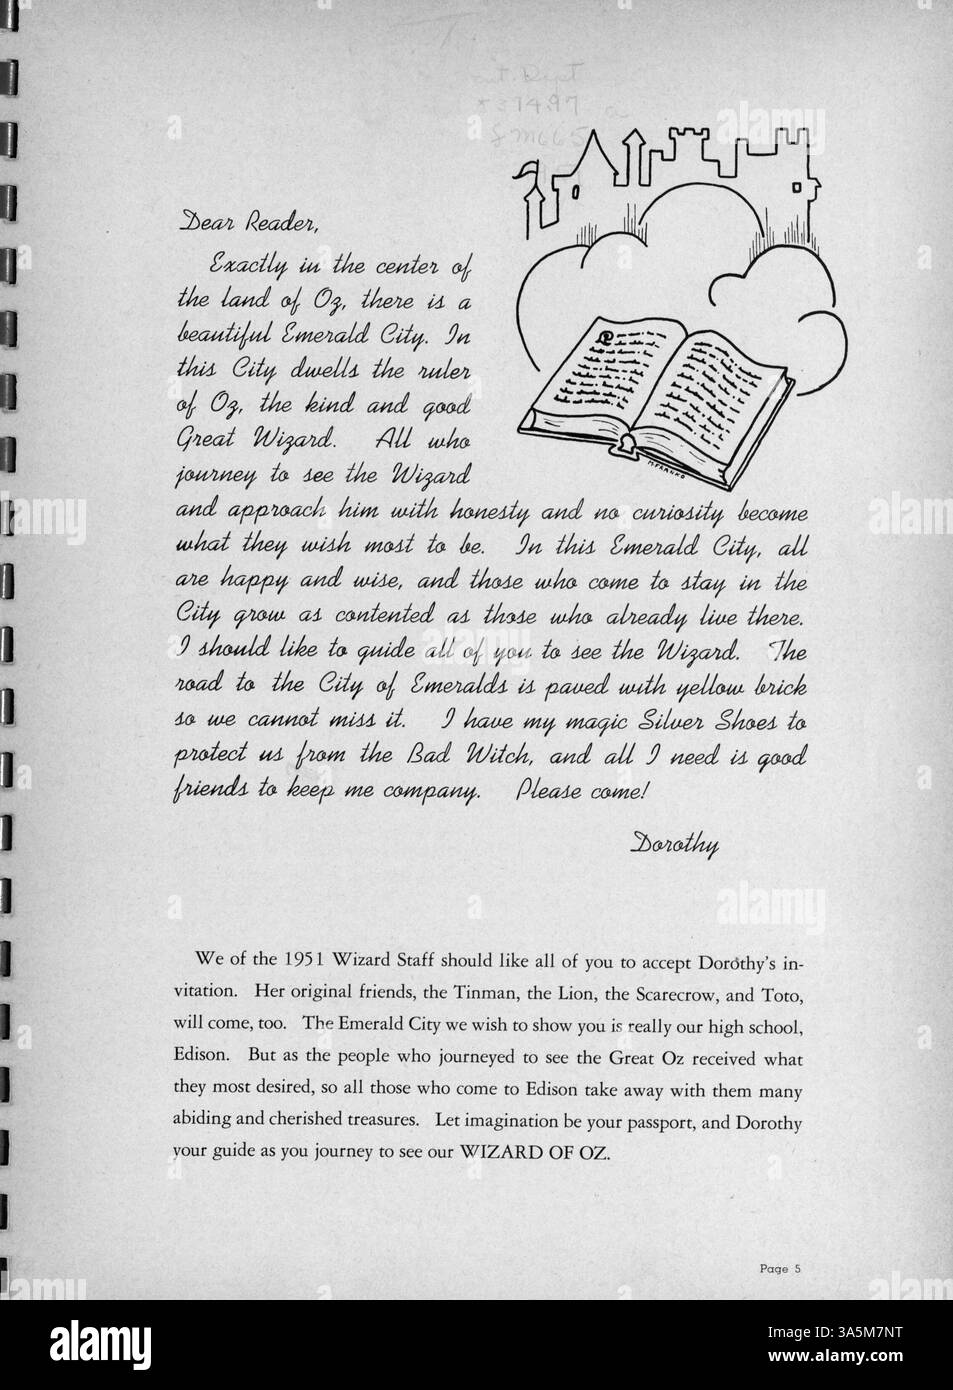 Dept
Dear Reader,
Exactly in the center of
the land of Oz, there is a
beautiful Emerald City. In
this City dwells the ruler
of Oz, the kind and good
Great Wizard. All who
journey to see the Wizard
and approach him with honesty and no curiosity become
what they wish most to be. In this Emerald City, all
are happy and wise, and those who come to stay in the
City grow as contented as those who already live there.
I should like to guide all of you to see the Wizard. The
road to the City of Emeralds is paved with yellow brick
so we cannot miss it. I have my magic Silver Shoes to
protect us from the Bad Witch, and all I need is good
friends to keep me company. Please come!
Dorothy
We of the 1951 Wizard Staff should like all of you to accept Dorothy's in-
vitation. Her original friends, the Tinman, the Lion, the Scarecrow, and Toto,
will come, too. The Emerald City we wish to show you is really our high school,
Edison. But as the people who journeyed to see the Great Oz received what
they most desired, so all those who come to Edison take away with them many
abiding and cherished treasures. Let imagination be your passport, and Dorothy
your guide as you journey to see our WIZARD OF OZ.
Page 5
alamy
Image ID: 3A5M7NT
www.alamy.com